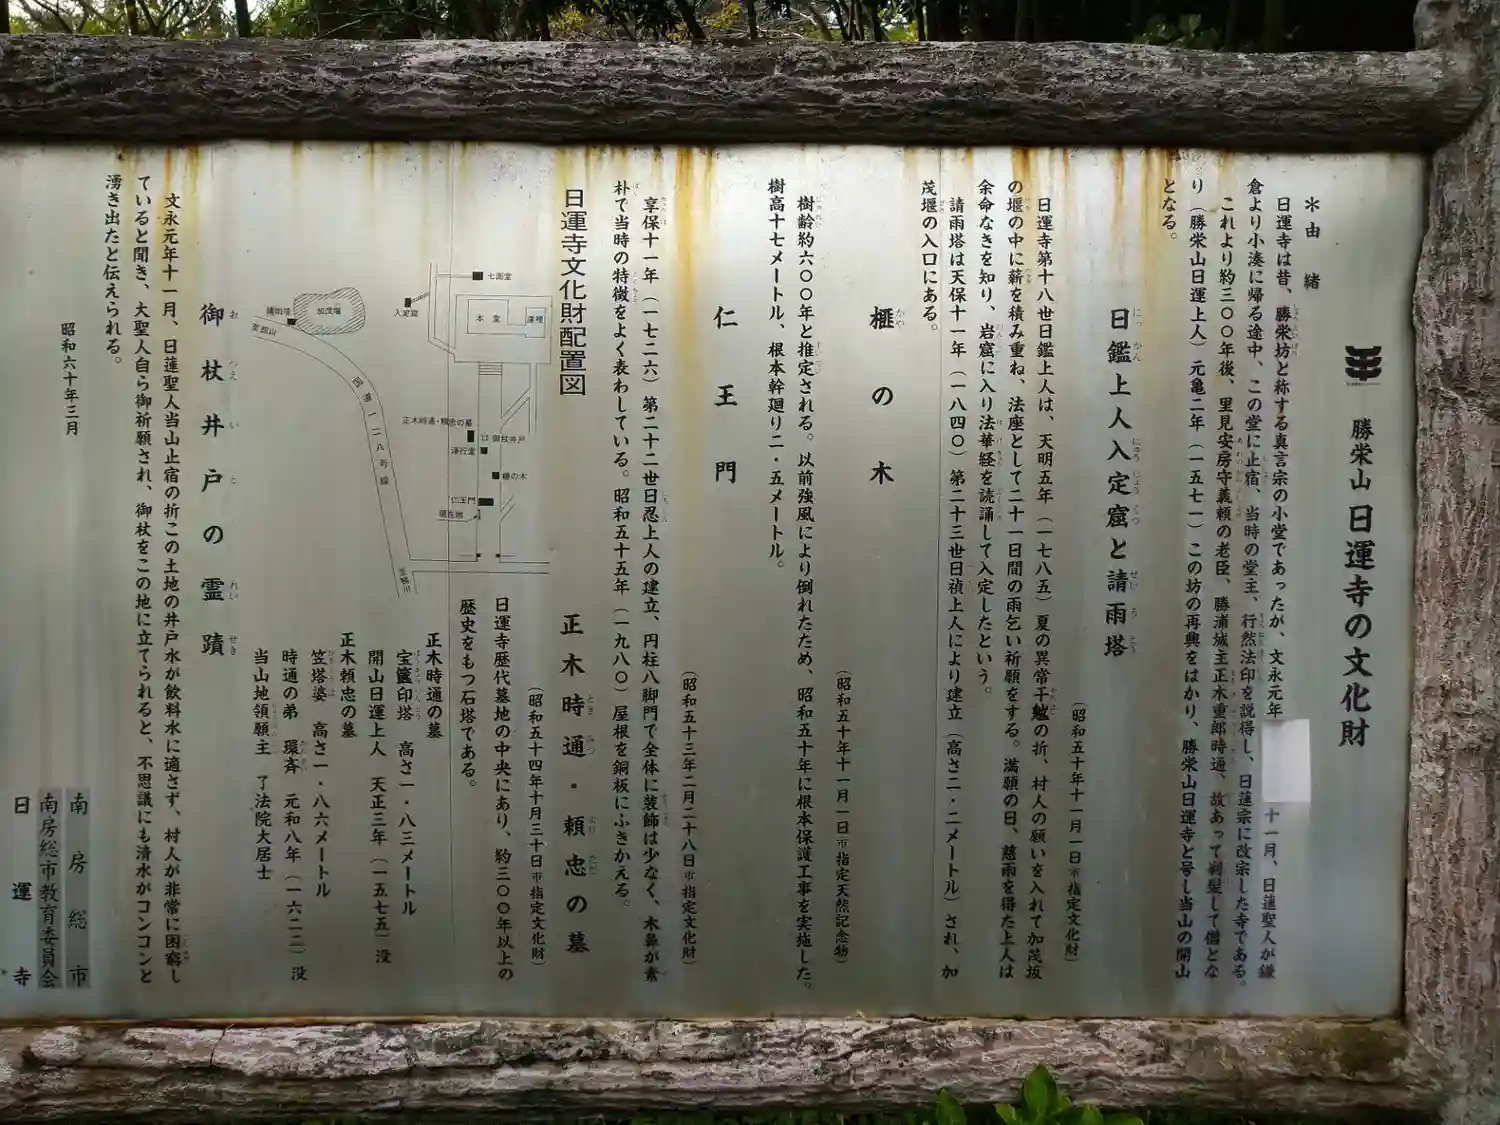 勝栄山 日運寺の文化財
＊由緒
日運寺は昔、勝栄坊と称する真言宗の小堂であったが、文永元年 十一月、日蓮聖人が鎌
倉より小湊に帰る途中、この堂に止宿、当時の堂主、行然法印を説得し、日蓮宗に改宗した寺である。
これより約三〇〇年後、里見安房守義頼の老臣、勝浦城主正木重郎時通、故あって剃髪して僧とな
り（勝栄山日運上人）元亀二年（一五七一）この坊の再興をはかり、勝栄山日運寺と号し当山の開山
となる。
日鑑上人入定窟と請雨塔
（昭和五十年十一月一日市指定文化財）
日運寺第十八世日鑑上人は、天明五年（一七八五）夏の異常干魃の折、村人の願いを入れて加茂坂
の堰の中に薪を積み重ね、法座として二十一日間の雨乞い祈願をする。満願の日、慈雨を得た上人は
余命なきを知り、岩窟に入り法華経を読誦して入定したという。
請雨塔は天保十一年（一八四〇）第二十三世日禎上人により建立（高さ二・二メートル）され、加
茂堰の入口にある。
榧の木
（昭和五十年十一月一日市指定天然記念物）
樹齢約六〇〇年と推定される。以前強風により倒れたため、昭和五十年に根本保護工事を実施した。
樹高十七メートル、根本幹廻り二・五メートル。
仁王門
（昭和五十三年二月二十八日市指定文化財）
享保十一年（一七二六）第二十二世日忍上人の建立、円柱八脚門で全体に装飾は少なく、木鼻が素
朴で当時の特徴をよく表わしている。昭和五十五年（一九八〇）屋根を銅板にふきかえる。
日運寺文化財配置図
七面堂
入定窟
本堂
庫裡
加茂堰
請雨塔
至館山
国道一二八号線
正木時通・頼忠の墓
御杖井戸
浄行堂
榧の木
仁王門
現在地
至鴨川
正木時通・頼忠の墓
（昭和五十四年十月三十日市指定文化財）
日運寺歴代墓地の中央にあり、約三〇〇年以上の
歴史をもつ石塔である。
正木時通の墓
宝篋印塔 高さ一・八三メートル
開山日運上人 天正三年（一五七五）没
正木頼忠の墓
笠塔婆 高さ一・八六メートル
時通の弟 環斉 元和八年（一六二二）没
当山地領願主 了法院大居士
御杖井戸の霊蹟
文永元年十一月、日蓮聖人当山止宿の折この土地の井戸水が飲料水に適さず、村人が非常に困窮し
ていると聞き、大聖人自ら御祈願され、御杖をこの地に立てられると、不思議にも清水がコンコンと
湧き出たと伝えられる。
昭和六十年三月
南房総市
南房総市教育委員会
日運寺